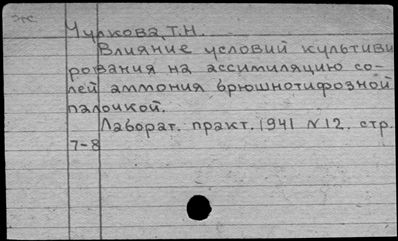 Чулкова, Т.Н.
Влияние условий культиви
рования на ассимиляцию со-
лей аммония брюшнотифозной
палочкой.
Лаборат. практ. 1941 N12. стр.
7-8